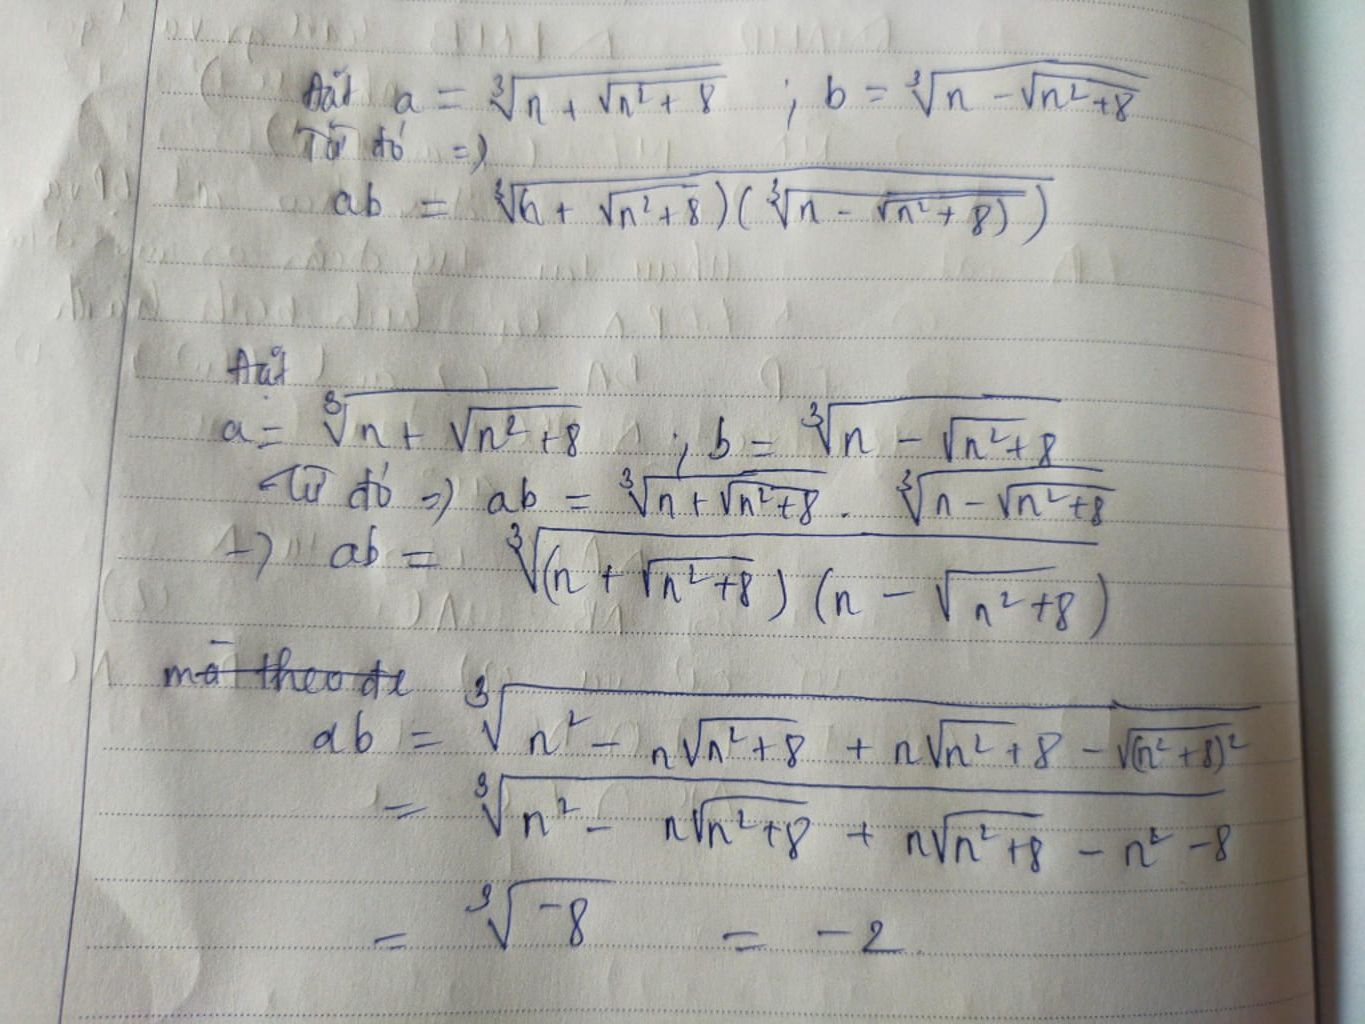 Đặt a = ∛(n + √(n² + 8)) ; b = ∛(n - √(n² + 8))
Từ đó =>
ab = ∛(n + √(n² + 8))(∛(n - √(n² + 8)))
Đặt
a = ∛(n + √(n² + 8)) ; b = ∛(n - √(n² + 8))
Từ đó => ab = ∛(n + √(n² + 8)) . ∛(n - √(n² + 8))
-> ab = ∛((n + √(n² + 8)) (n - √(n² + 8)))
mà theo đề
ab = ∛(n² - n√(n² + 8) + n√(n² + 8) - √(n² + 8)²)
= ∛(n² - n√(n² + 8) + n√(n² + 8) - n² - 8)
= ∛(-8) = -2.